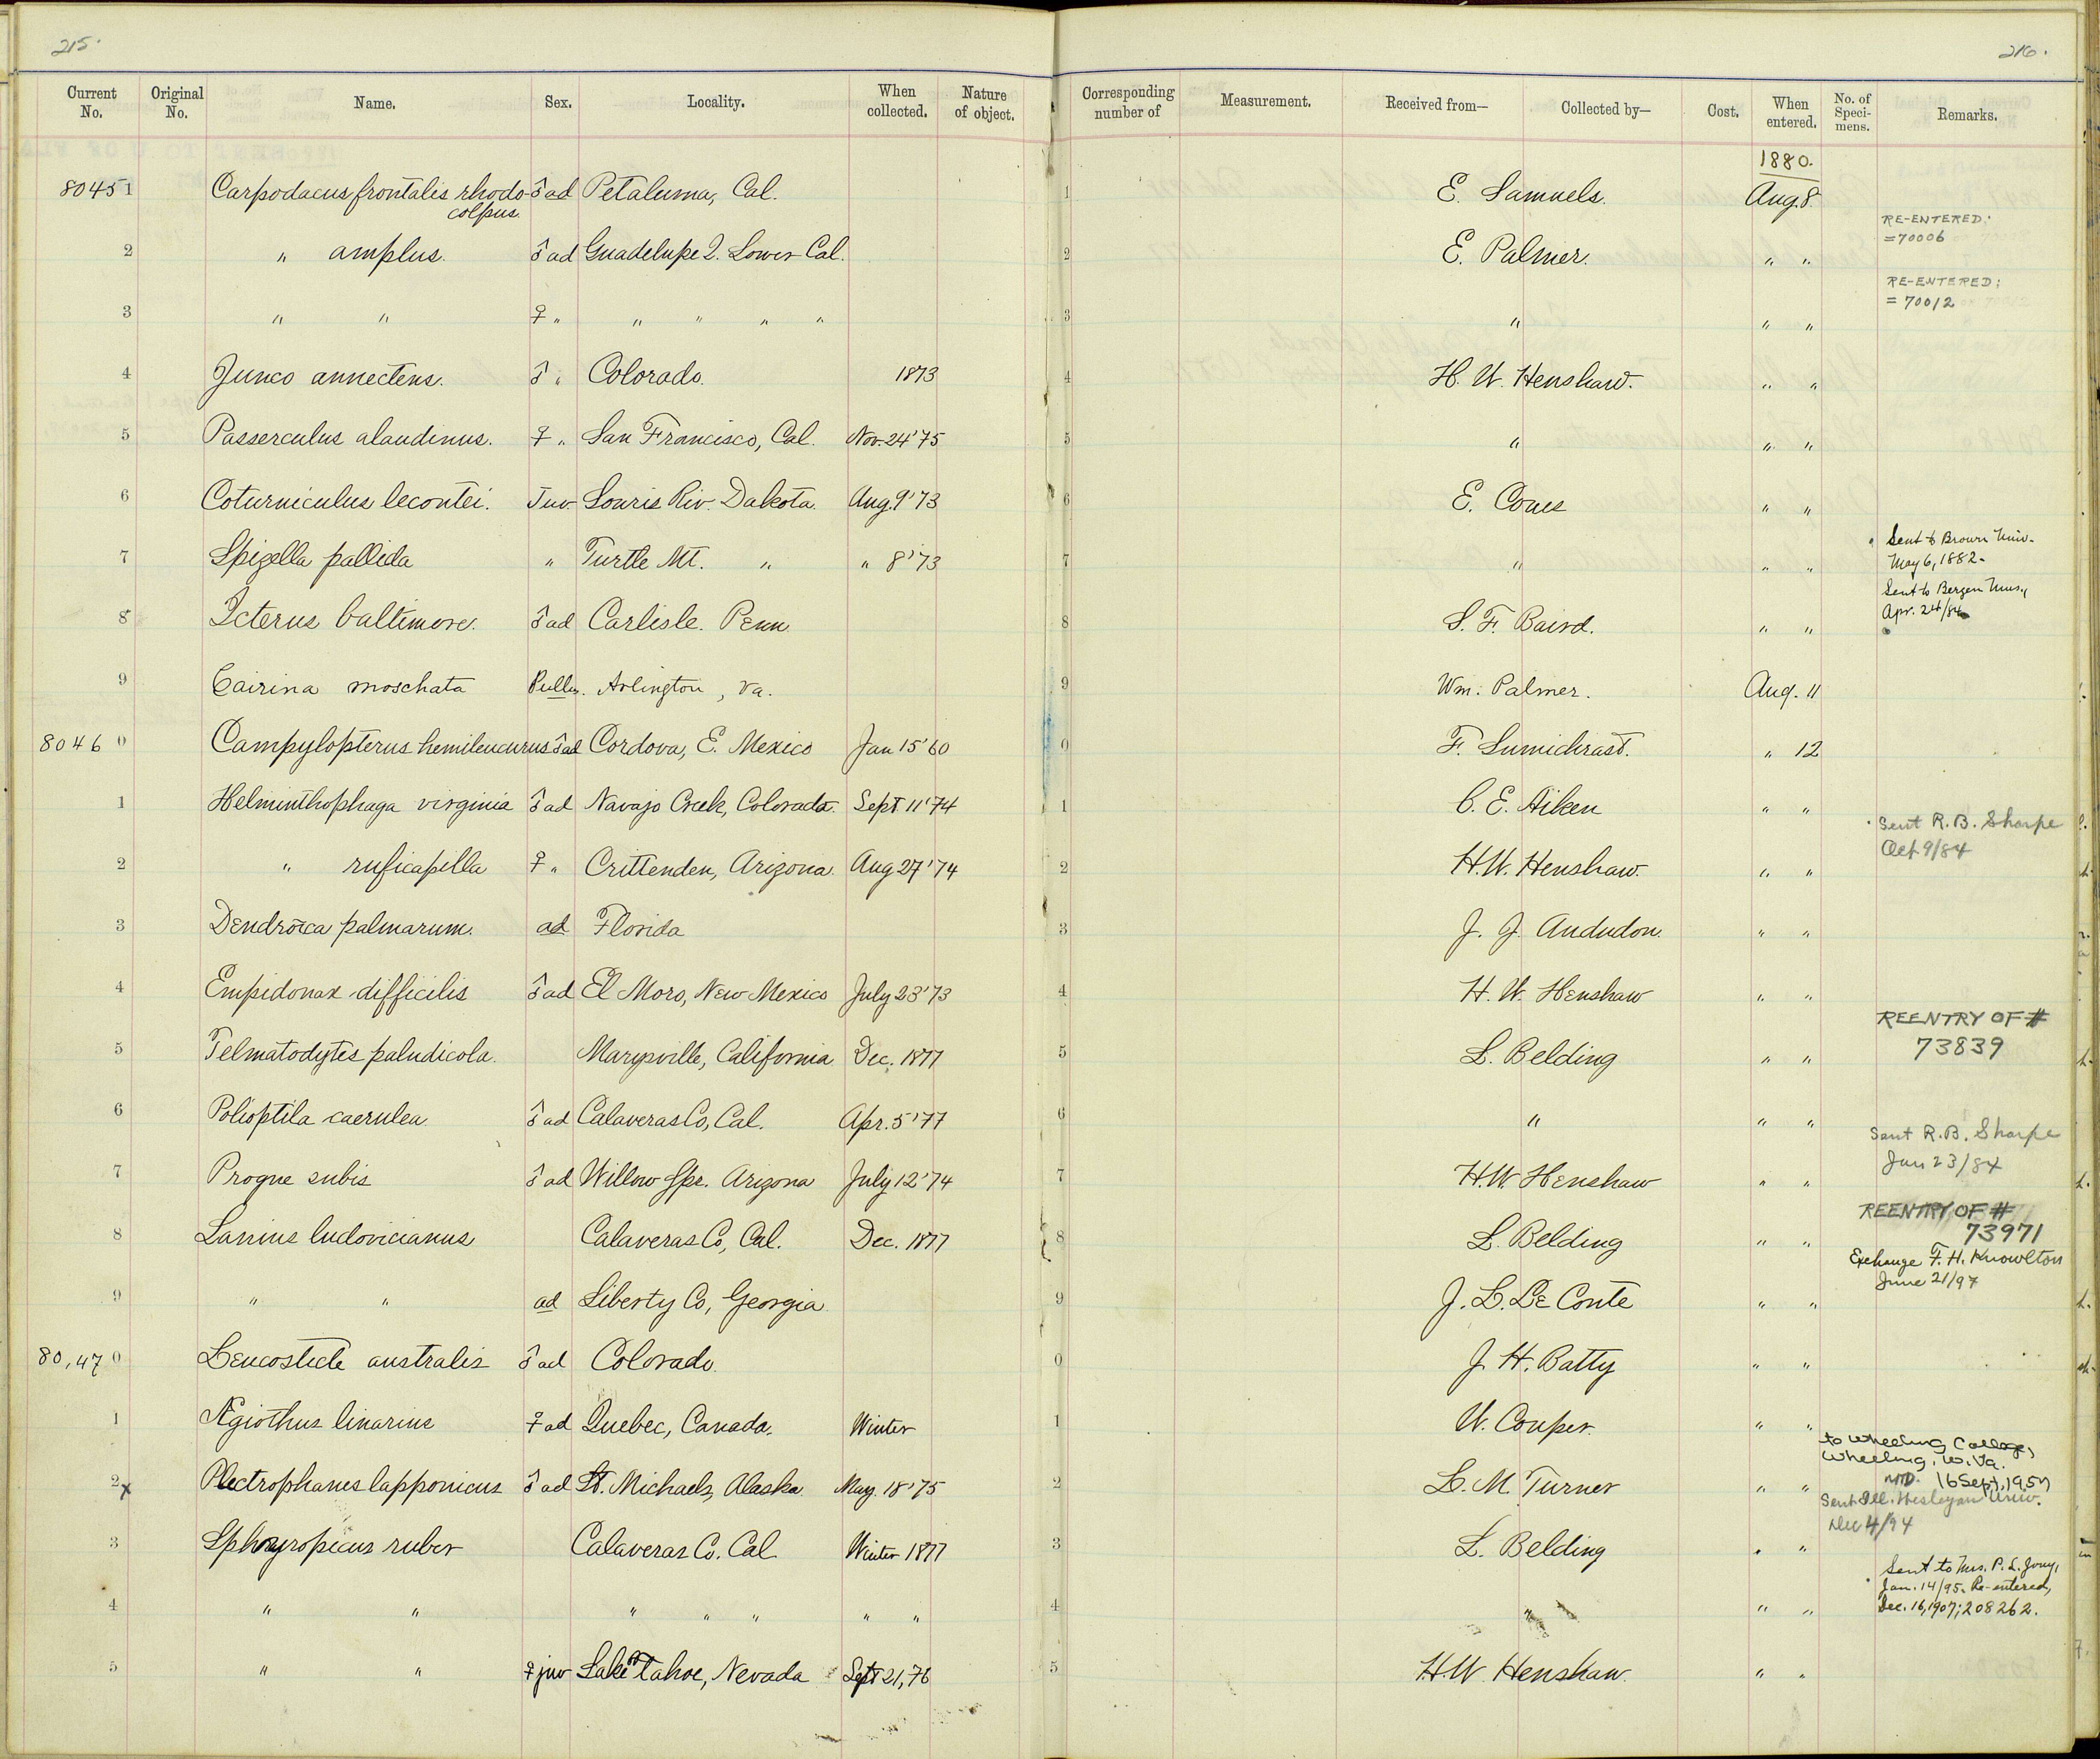 215.
216.
Current No. Original No. Name. Sex. Locality. When collected. Nature of object. Corresponding number of Measurement. Received from— Collected by— Cost. When entered. No. of Specimens. Remarks.
1880.
80451 Carpodacus frontalis rhodo- ♂ ad Petaluma, Cal. 1 E. Samuels. Aug. 8.
colpus.
RE-ENTERED:
=70006
2 " amplus. ♂ ad Guadelupe I. Lower Cal. 2 E. Palmer. " "
RE-ENTERED:
= 70012
3 " " ♀ " " " " " 3 " " "
4 Junco annectens. ♂ " Colorado. 1873 4 H. W. Henshaw. " "
5 Passerculus alaudinus. ♀ " San Francisco, Cal. Nov. 24 '75 5 " " "
6 Coturniculus lecontei. Juv. Souris Riv. Dakota. Aug. 9 '73 6 E. Coues " "
7 Spizella pallida " Turtle Mt. " " 8 '73 7 " " " Sent to Brown Univ.
May 6, 1882.
8 Icterus baltimore. ♂ ad Carlisle. Penn. 8 S. F. Baird. " " Sent to Bergen Mus.,
Apr. 24/84
9 Cairina moschata Pullus. Arlington, Va. 9 Wm. Palmer. Aug. 11
80460 Campylopterus hemileucurus ♂ ad Cordova, E. Mexico Jan 15 '60 0 F. Sumichrast. " 12
1 Helminthophaga virginia ♂ ad Navajo Creek, Colorado. Sept 11 '74 1 C. E. Aiken " "
Sent R. B. Sharpe
Oct 9/84
2 " ruficapilla ♀ " Crittenden, Arizona. Aug 27 '74 2 H. W. Henshaw. " "
3 Dendroica palmarum. ad Florida 3 J. J. Aududon. " "
4 Empidonax difficilis ♂ ad El Moro, New Mexico July 23 '73 4 H. W. Henshaw " "
REENTRY OF #
73839
5 Telmatodytes paludicola. Marysville, California Dec. 1877 5 L. Belding " "
6 Polioptila caerulea. ♂ ad Calaveras Co, Cal. Apr. 5 '77 6 " " "
Sent R. B. Sharpe
Jan 23/84
7 Progne subis ♂ ad Willow Spr. Arizona July 12 '74 7 H. W. Henshaw " "
REENTRY OF #
73971
8 Lanius ludovicianus Calaveras Co, Cal. Dec. 1877 8 L. Belding " "
Exchange F. H. Knowlton
June 21/97
9 " " ad Liberty Co, Georgia. 9 J. L. Le Conte " "
80,470 Leucosticte australis ♂ ad Colorado. 0 J. H. Batty " "
1 Ægiothus linarius ♀ ad Quebec, Canada. Winter 1 W. Couper. " "
to Wheeling College,
Wheeling, W. Va.
16 Sept, 1957
2 x Plectrophanes lapponicus ♂ ad St. Michaels, Alaska. May. 18 '75 2 L. M. Turner " "
Sent Ill. Wesleyan Univ.
Dec 4/94
3 Sphyropicus ruber Calaveras Co. Cal. Winter 1877 3 L. Belding " "
Sent to Mrs. P. L. Jouy,
Jan. 14/95. Re-entered,
Dec. 16, 1907; 208262.
4 " " " " " " " 4 " " "
5 " " ♀ juv Lake Tahoe, Nevada Sept 21, 76 5 H. W. Henshaw. " "